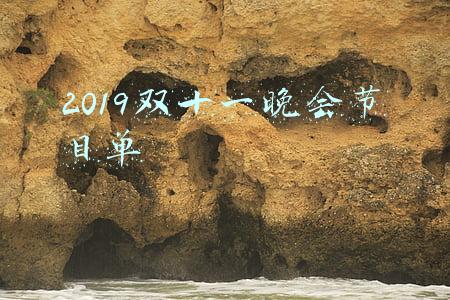 2019双十一晚会节
目单